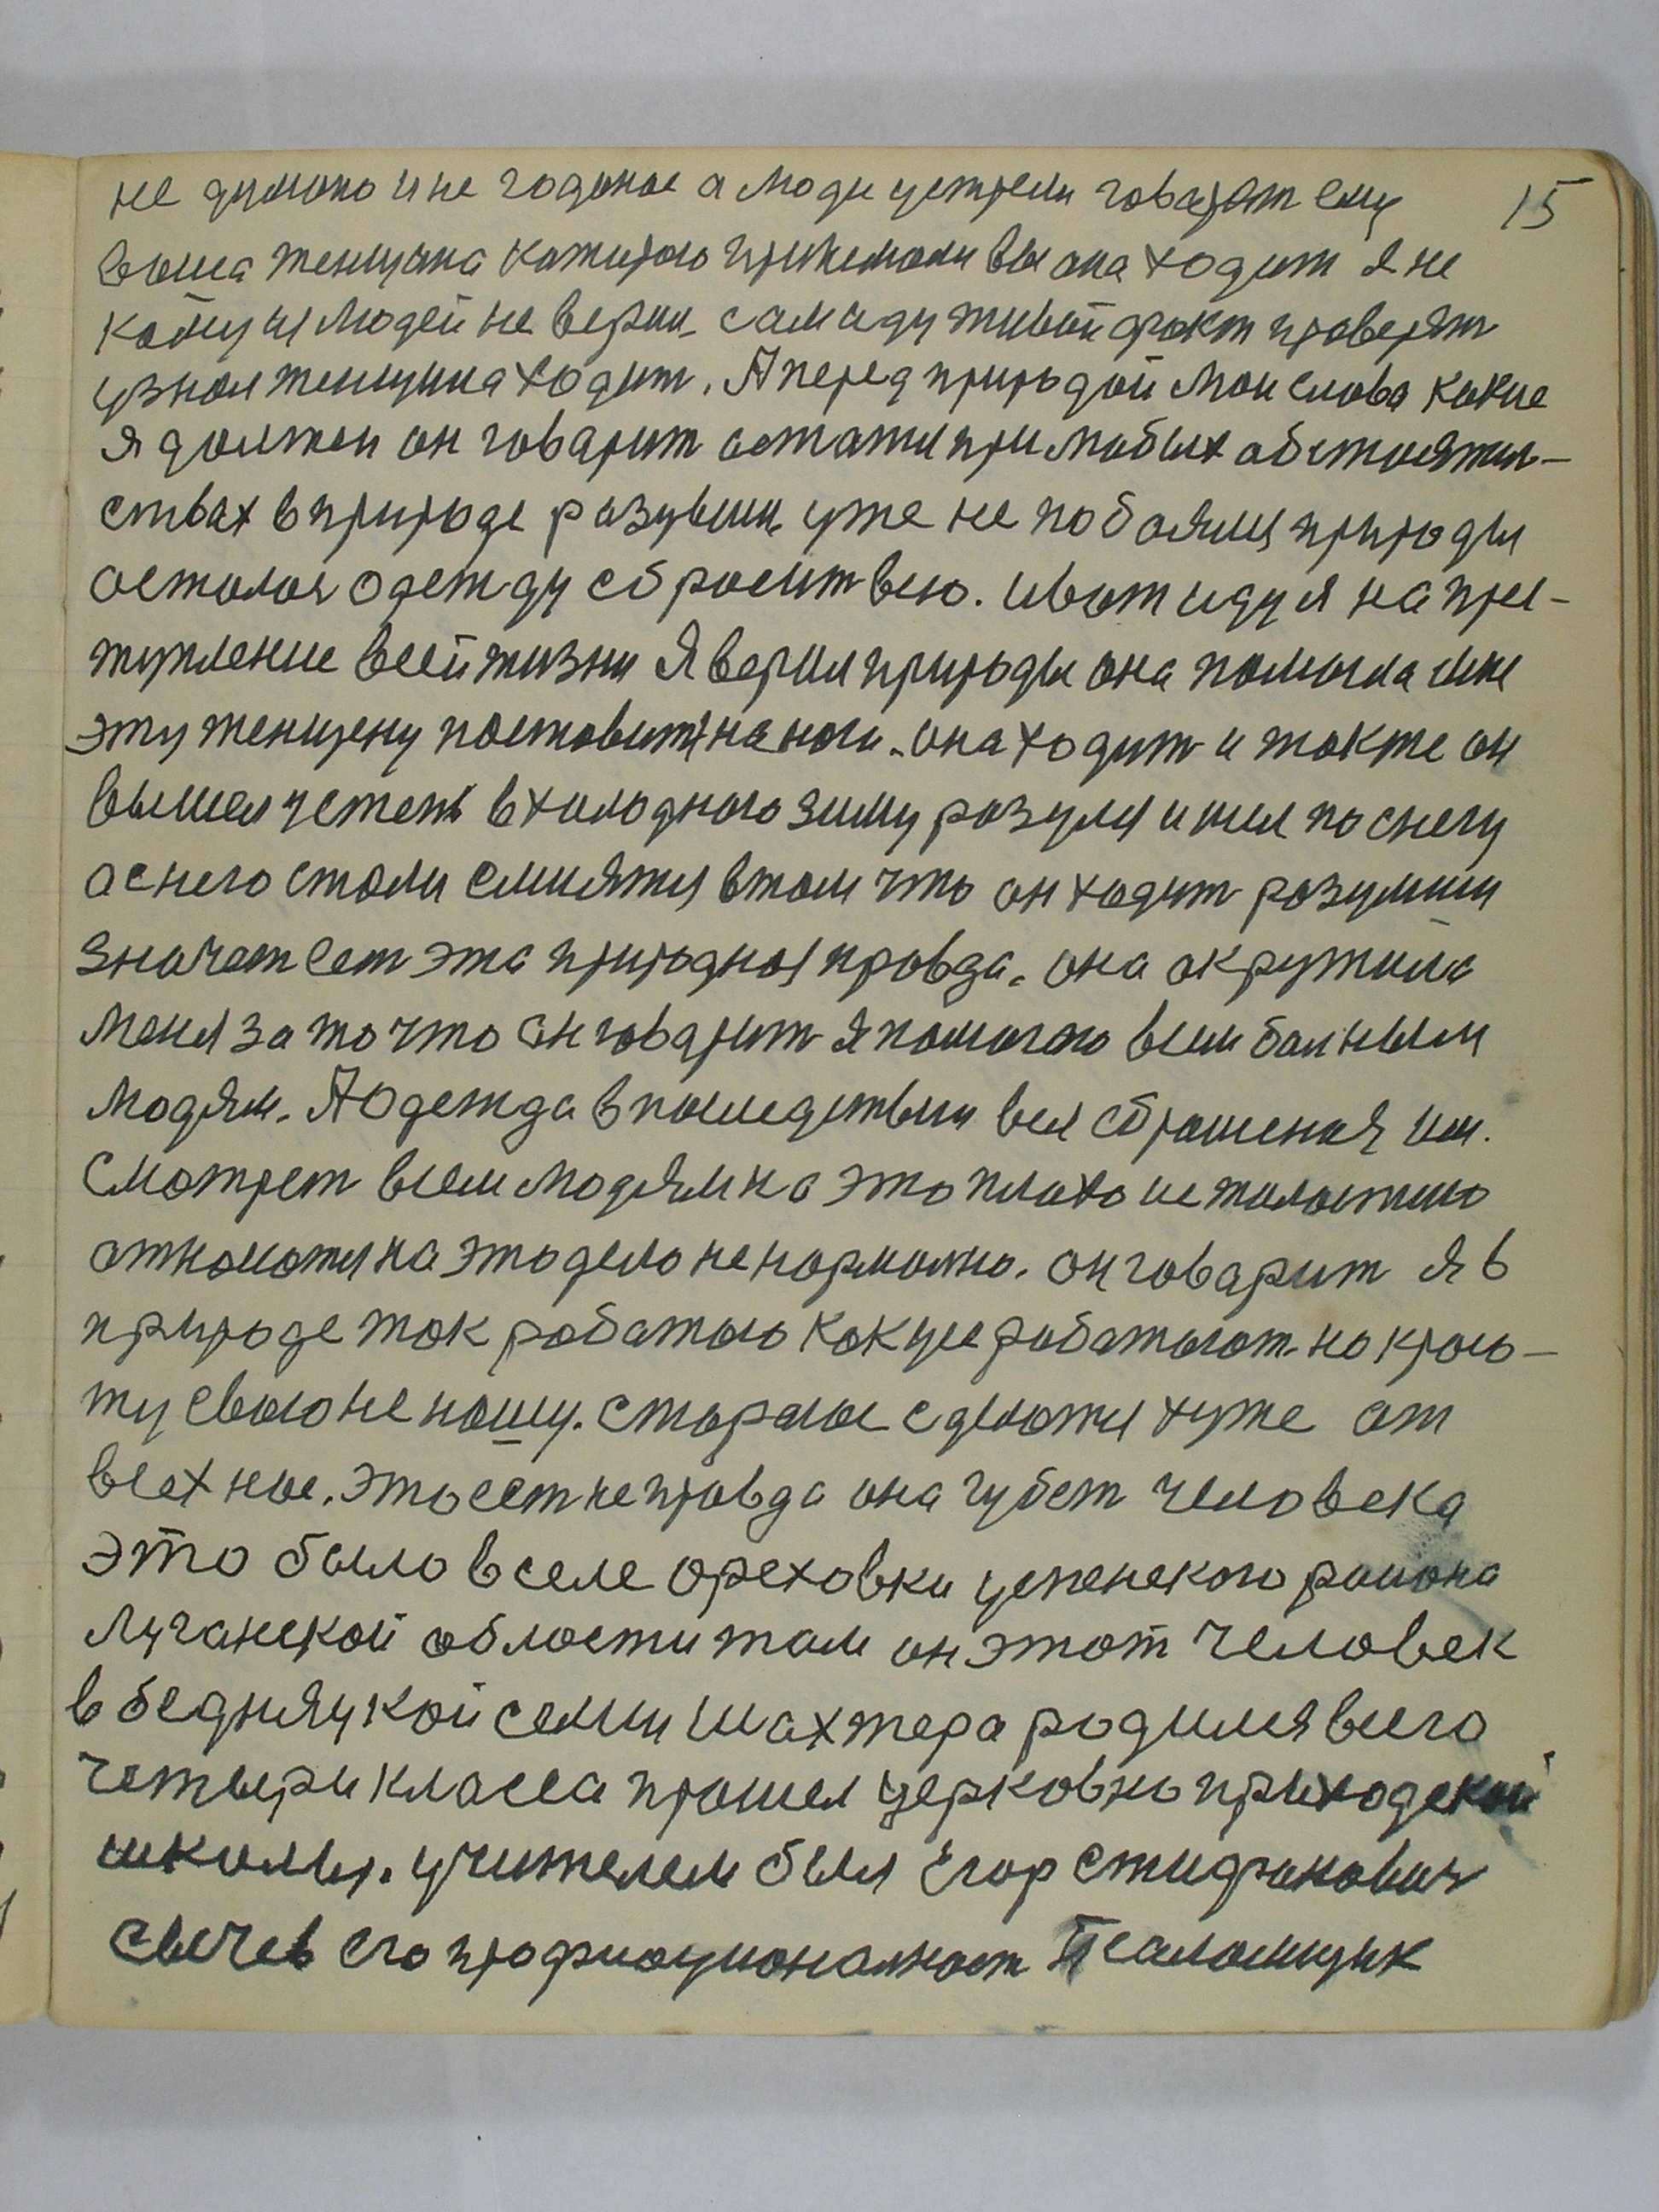 15
не думано и не годоное а люди устрели говарят ему
ваша женщина катирою принемали вы она ходит я не
кому из людей не верил. сам иду живой факт проверят
узнал женщина ходит. А перед природой мои слова какие
я должен он говарит астатся при любых обстоятил-
ствах в природе разувши. уже не пабоялся природы
асталос одежду сброситвсю. ивот иду я на при-
тупление всей жизни Я верил природы она помогла мне
эту женщену поставитьна ноги. она ходит и также он
вышел устепь вхолодною зиму разулся и шел по снегу
а снего стали смиятся втом что он ходит разумши
значет ест эта природная правда. она окружила
меня за то что он говарит я помогаю всем болным
людям. А одежда впоследствии вся сброшеная им.
Смотрет всем людям на это плохо и жалостно
атнасился на это дело не нормално. он говарит я в
природе так работаю как усе работают. но крсо-
ту свою не ношу. старался сделатся хуже от
всех нас. это ест неправда она губет человека
это было в селе ореховки успенского района
Луганской области там он этот человек
в бедняцкой семии шахтера родился всего
четыри класса прошел церковно приходской
школы. учителем был Егор Стифанович
свечев его професионалност Псаломщик